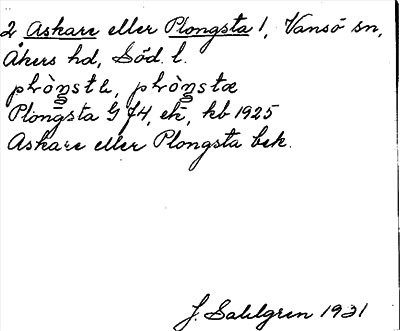 2 Askare eller Plongsta 1, Vansö sn,
Åkers hd, Söd. l.
Plongsta G J4, ek, kb 1925
Askare eller Plongsta bek.
J. Sahlgren 1931